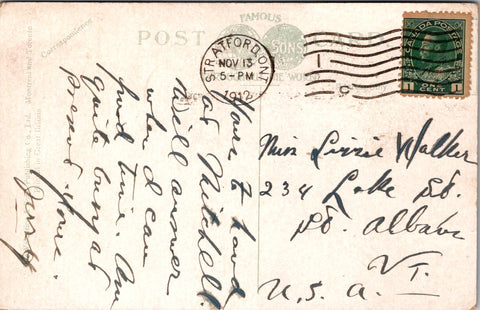 FAMOUS
POST CARD
& SONS
STRATFORD, ONT
NOV 13
5-PM
1912
CANADA POSTAGE
1 CENT 1
Correspondence
Yours to hand
at Mitchell.
Will answer
when I can
find time. Am
quite busy at
present. Yours
Miss Lizzie Walker
234 Lake St.
St. Albans
VT.
U.S.A.